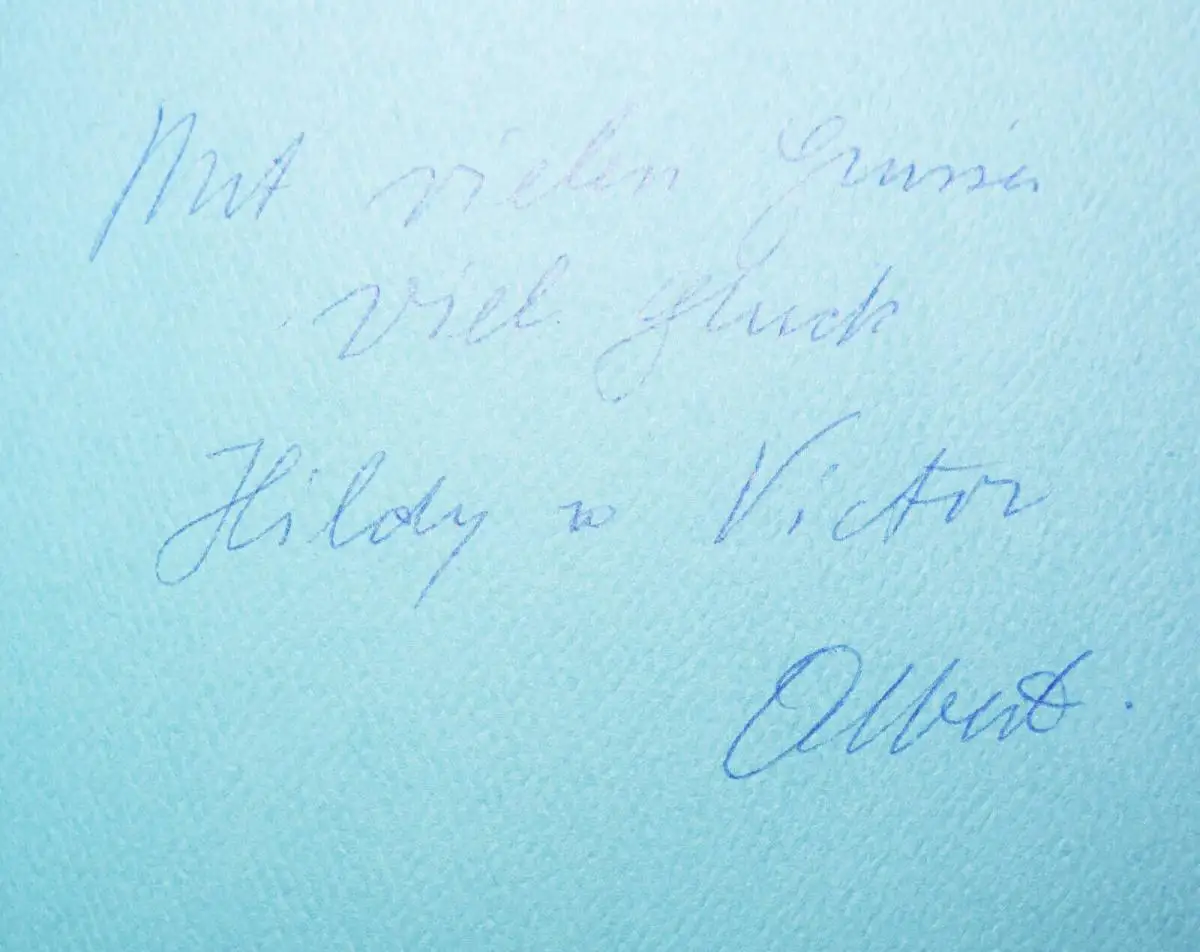 Mit vielen Grüssen
viel Glück
Hildy u Victor
Albert.